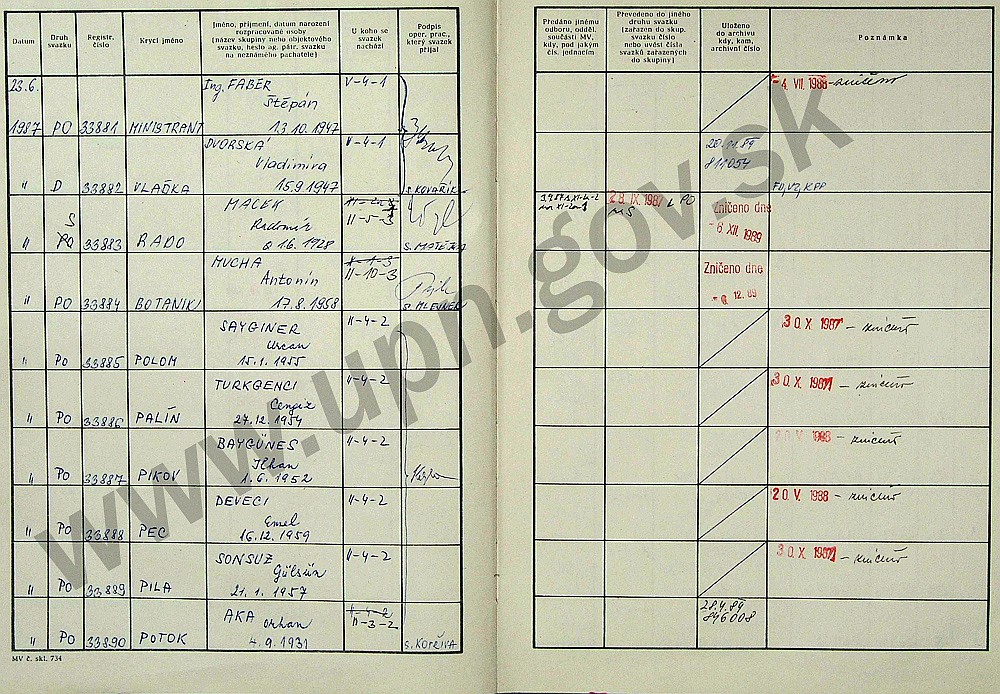 Datum
Druh svazku
Registr. číslo
Krycí jméno
Jméno, příjmení, datum narození
rozpracované osoby
(název skupiny nebo objektového
svazku, heslo ag. pátr. svazku
na neznámého pachatele)
U koho se
svazek
nachází
Podpis
oper. prac.,
který svazek
přijal
Předáno jinému
odboru, odděl.
součásti MV,
kdy, pod jakým
čís. jednacím
Převedeno do jiného
druhu svazku
(zařazen do skup.
svazku číslo
nebo uvést čísla
svazků zařazených
do skupiny)
Uloženo
do archivu
kdy, kam,
archivní číslo
Poznámka
23.6. Ing. FABER V-4-1 -4. VII. 1988 - zničeno
Štěpán
1987 PO 33881 MINISTRANT 13.10.1947
DVORSKÁ V-4-1 20.11.89
Vladimíra 811054
" D 33882 VLAĎKA 15.9.1947 s. KOVAŘÍK
MACEK 28. IX. 1987 Zničeno dne
S Radomír II-5-3 -6 XII. 1989
" PO 33883 RADO 1928 s. MATĚJKA
MUCHA II-1-3 Zničeno dne
Antonín II-10-3
" PO 33884 BOTANIK 17.8.1958 s. MLEJNEK 12. 89
SAYGINER II-4-2 30. X. 1987 - zničeno
Urcan
" PO 33885 POLOM 15.1.1955
TURKGENCI II-4-2 30. X. 1987 - zničeno
Cengiz
" PO 33886 PALÍN 27.12.1954
BAYGÜNES II-4-2 20. V. 1988 - zničeno
Ilhan
" PO 33887 PIKOV 1.6.1952
DEVECI II-4-2 20. V. 1988 - zničeno
Emel
" PO 33888 PEC 16.12.1959
SONSUZ II-4-2 30. X. 1987 - zničeno
Gülsün
" PO 33889 PILA 21.1.1957
AKA II-4-2 28.4.89
Orhan II-3-2 846008
" PO 33890 POTOK 4.9.1931 s. KOPŘIVA
MV č. skl. 734
www.upn.gov.sk